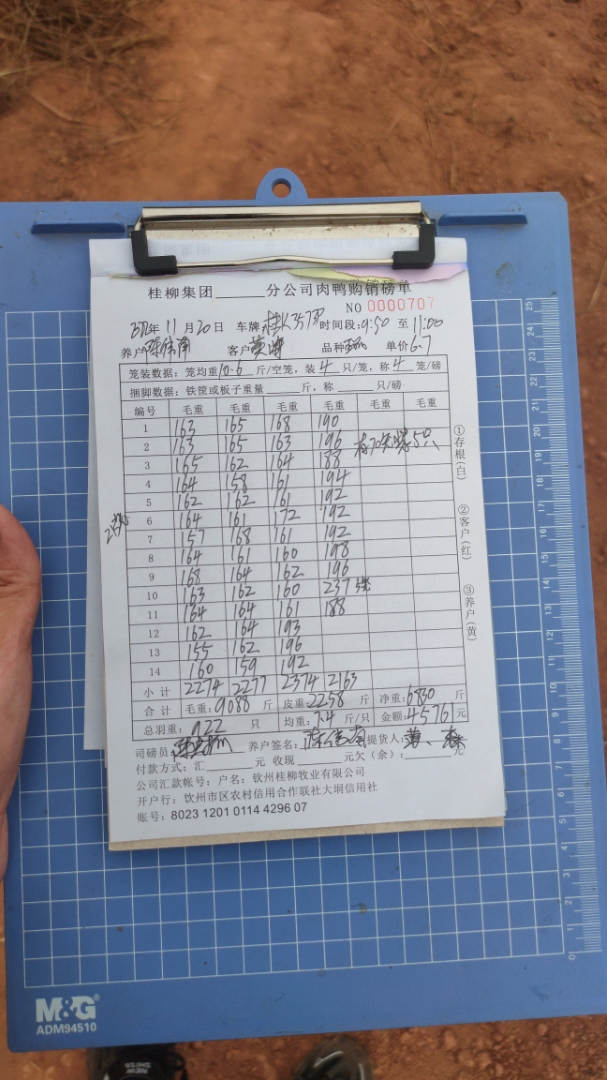 桂柳集团______分公司肉鸭购销磅单
NO 0000707
年 11 月 20 日 车牌 时间段: 9:50 至 11:00
养户 客户 品种 单价 6.7
笼装数据: 笼均重 10.6 斤/空笼, 装 4 只/笼, 称 4 笼/磅
捆脚数据: 铁筐或板子重量______斤, 称______只/磅
编号 毛重 毛重 毛重 毛重 毛重 毛重
1 163 165 168 190
2 163 165 163 196
3 165 162 164 188
4 164 158 161 194
5 162 162 161 192
6 164 161 172 192
7 157 168 161 192
8 164 161 160 198
9 168 164 162 196
10 163 162 160 237
11 164 164 161 188
12 162 164 193
13 155 162 196
14 160 159 192
小计 2274 2277 2374 2163
合计 毛重: 9088 斤 皮重: 2258 斤 净重: 6830 斤
总羽重: 922 只 均重: 7.4 斤/只 金额: 45761 元
司磅员 养户签名: 提货人:
付款方式: 汇______元 收现______元欠(余):______元
公司汇款帐号: 户名: 钦州桂柳牧业有限公司
开户行: 钦州市区农村信用合作联社大垌信用社
账号: 8023 1201 0114 4296 07
①存根(白)
②客户(红)
③养户(黄)
M&G
ADM94510